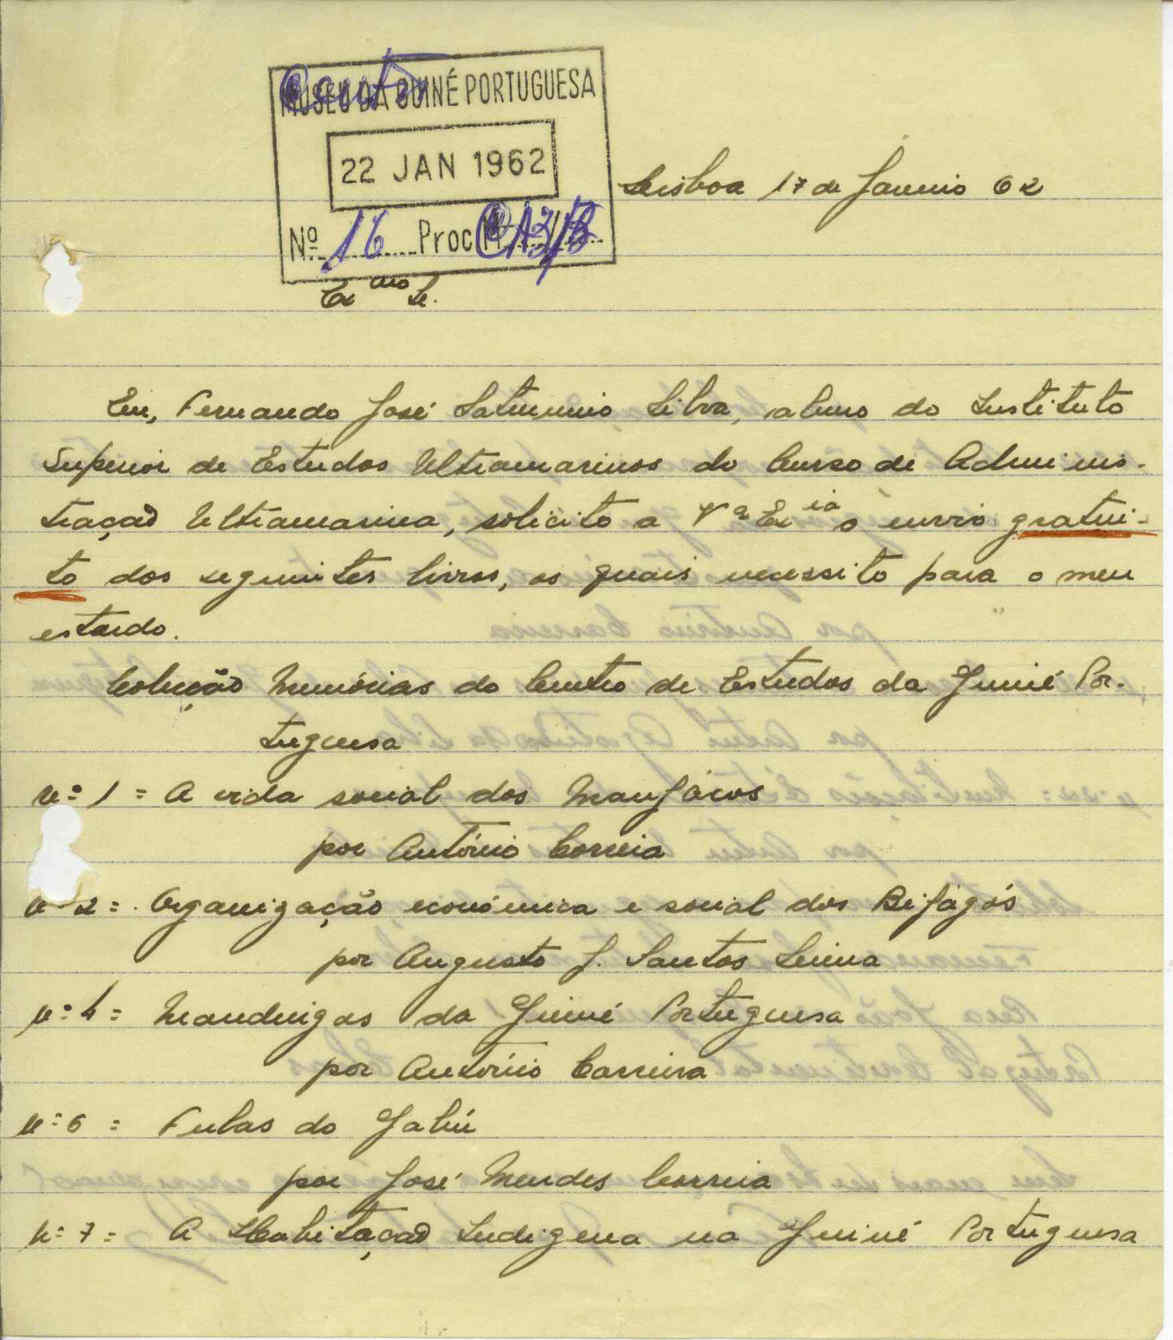 MUSEU DA GUINÉ PORTUGUESA
Centro
22 JAN 1962
Nº 16 Proc CA3/B
Lisboa 17 de Janeiro 62
Exmo Sr.
Eu, Fernando José Saturnino Silva, aluno do Instituto
Superior de Estudos Ultramarinos do Curso de Adminis-
tração Ultramarina, solicito a Vª Exia o envio gratui-
to dos seguintes livros, os quais necessito para o meu
estudo.
Colecção Memórias do Centro de Estudos da Guiné Por-
tuguesa
nº 1 = A vida social dos Manjácos
por António Correia
nº 2 = Organização económica e social dos Bijagós
por Augusto J. Santos Lima
nº 4 = Mandingas da Guiné Portuguesa
por António Carreira
nº 6 = Fulas do Gabú
por José Mendes Correia
nº 7 = A Habitação Indigena na Guiné Portuguesa